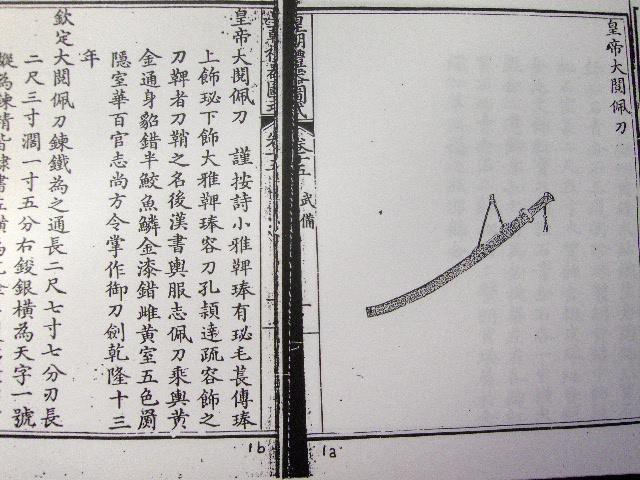 皇帝大閱佩刀
皇朝禮器圖式 卷十五 武備
1a
皇帝大閱佩刀 謹按詩小雅鞞琫有珌毛萇傳琫
上飾珌下飾大雅鞞琫容刀孔穎達疏容飾之
刀鞞者刀鞘之名後漢書輿服志佩刀乘輿黃
金通身貂錯半鮫魚鱗金漆錯雌黃室五色罽
隱室華百官志尚方令掌作御刀劍乾隆十三
年
欽定大閱佩刀鍊鐵為之通長二尺七寸七分刃長
二尺三寸濶一寸五分右鋄銀橫為天字一號
縱為鍊精皆隸書左橫為
1b